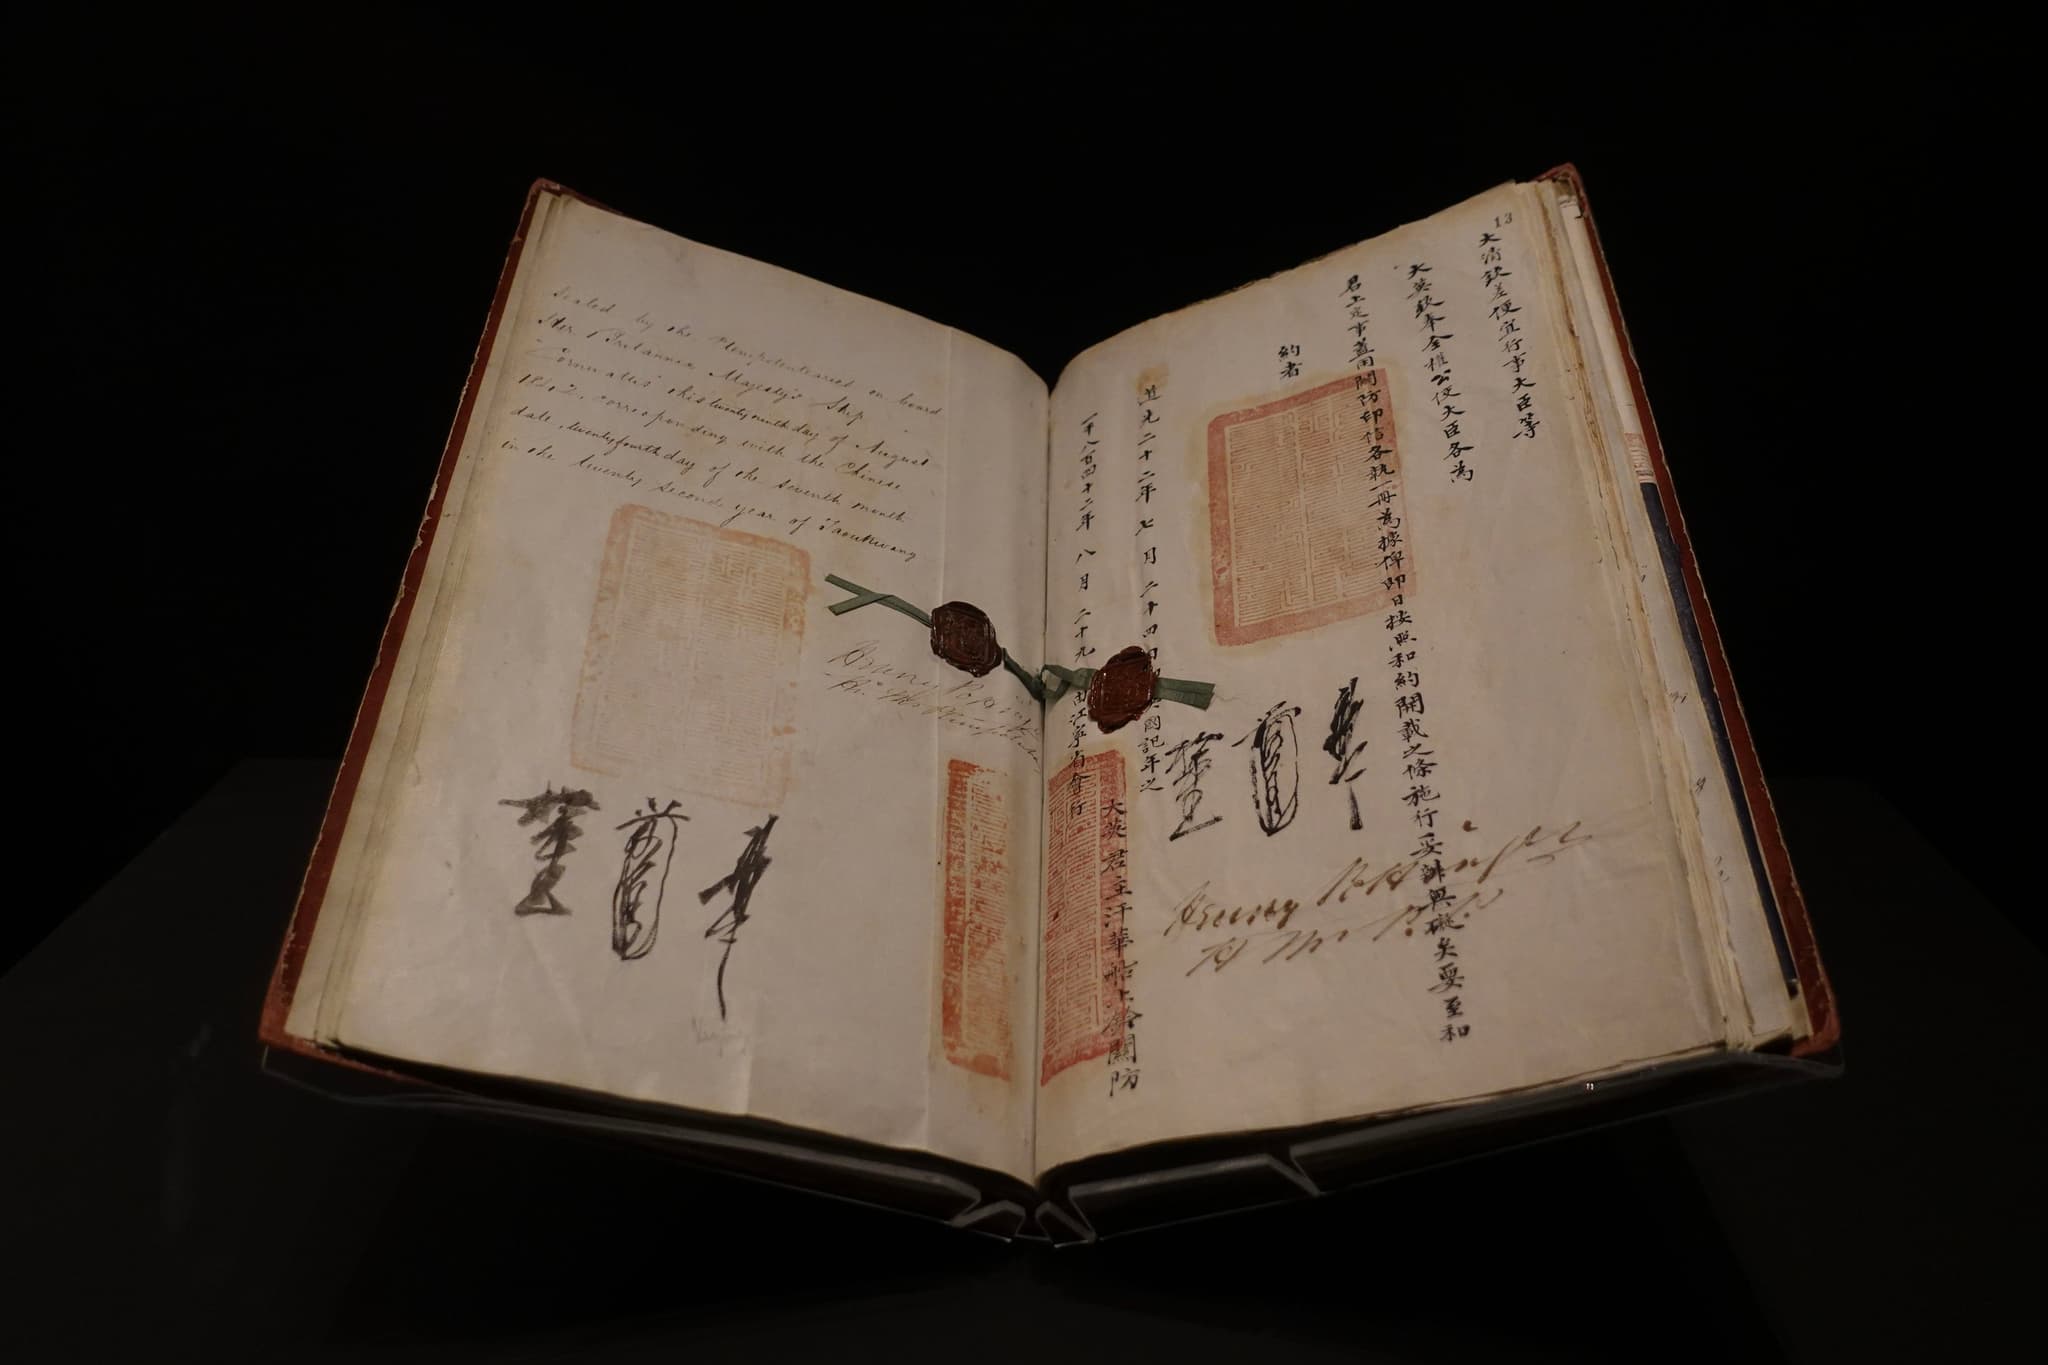 Sealed by the Plenipotentiaries on board
Her Britannic Majesty's Ship
"Cornwallis" this twenty ninth day of August
1842, corresponding with the Chinese
date, twenty fourth day of the seventh month
in the twenty second year of Taoukwang
Henry Pottinger
13
大清欽差便宜行事大臣等
大英欽奉全權公使大臣各為
君上定事蓋用關防印信各執一冊為據俾即日按照和約開載之條施行妥辦無礙矣要至和
約者
道光二十二年七月二十四 英國記年之
一千八百四十二年八月二十九 由江寧省會行
大英君主汗華船上鈐關防
Henry Pottinger